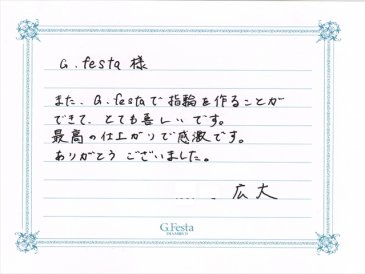 G.festa 様
また、G.festaで指輪を作ることが
できて、とても喜しいです。
最高の仕上がりで感激です。
ありがとうございました。
広大
G.Festa
DIAMOND